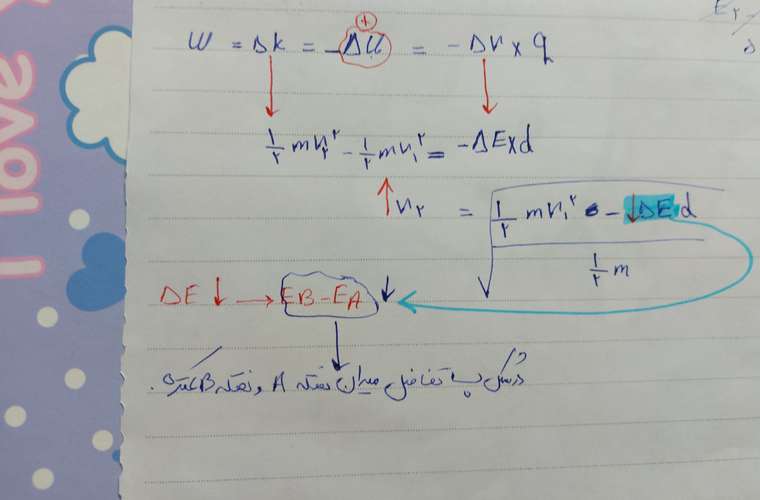 E۲
W = Δk = -ΔU = -ΔV × q
+
½ m v۲² - ½ m v۱² = -ΔE × d
v۲ = √((½ m v۱² - ΔE d) / (½ m))
ΔE ↓ → E_B - E_A ↓
در شکل تفاضل میان نقطه A و نقطه B
I love